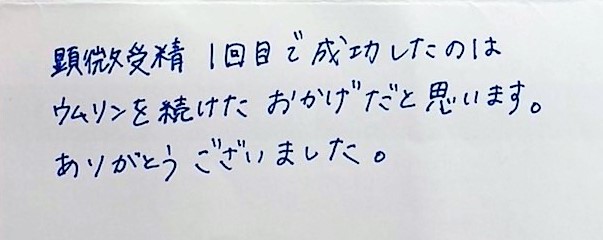 顕微受精 1回目で成功したのは
ウムリンを続けた おかげだと思います。
ありがとう ございました。